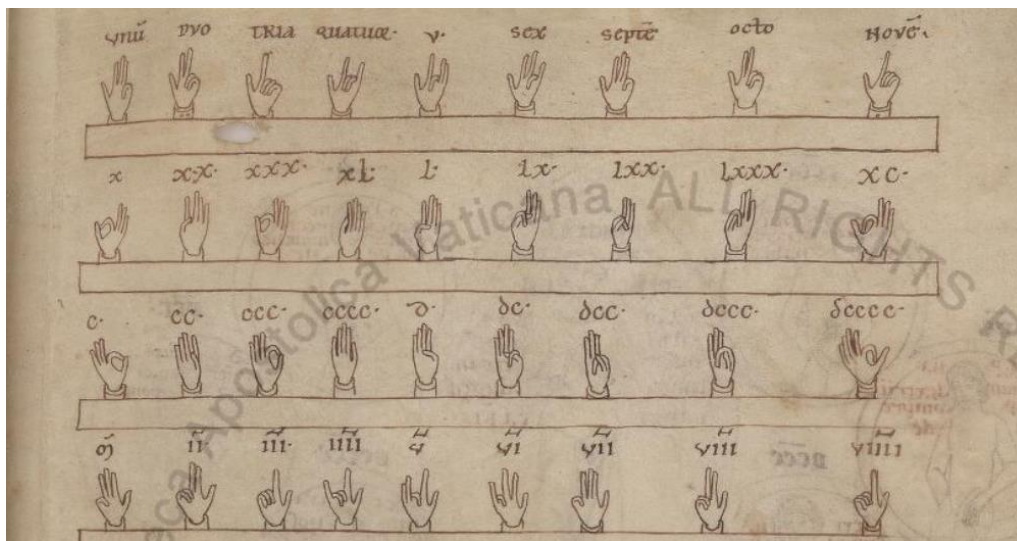 vnū dvo tria quatuor· v· sex septē octo novē·
x xx· xxx· xl· l· lx· lxx· lxxx· xc·
c· cc· ccc· cccc· d· dc· dcc· dccc· dcccc·
ii· iii· iiii v̄ vi vii viii viiii
Apostolica Vaticana ALL RIGHTS